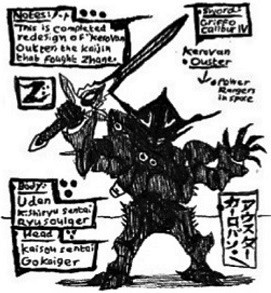 Notes:
This is completed
redesign of "Kerovan
Outzen the Kaijin
that fought Zhane.
Sword:
Griffo
calibur IV
Kerovan
Ouster
Power
Rangers
in space
Z
Body:
Uden
kishiryu sentai
Ryusoulger
Head
kaisou sentai
Gokaiger
アウスター
カーロバン